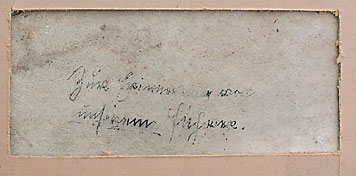 Zur Erinnerung von
unserem Führer.